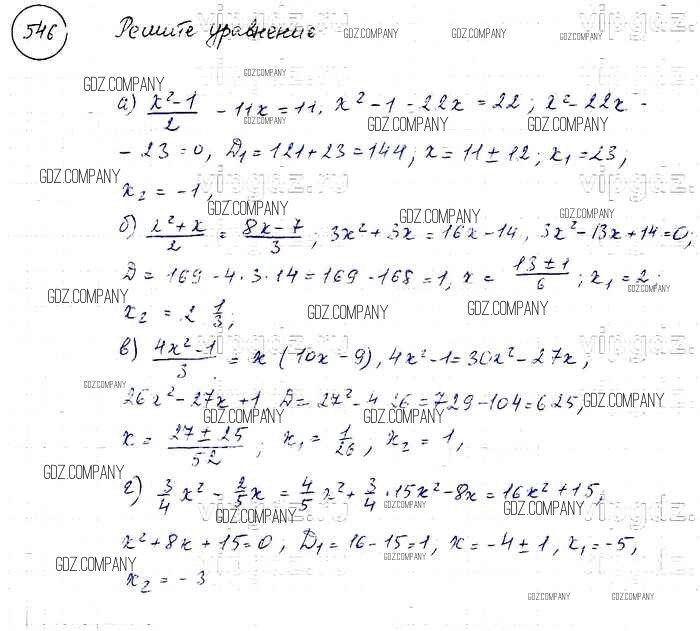 546 Решите уравнение
а) x²-1/2 - 11x = 11, x² - 1 - 22x = 22; x² - 22x -
- 23 = 0, D₁ = 121 + 23 = 144; x = 11 ± 12; x₁ = 23,
x₂ = -1,
б) x²+x/2 = 8x-7/3; 3x² + 3x = 16x - 14, 3x² - 13x + 14 = 0;
D = 169 - 4·3·14 = 169 - 168 = 1, x = 13±1/6; x₁ = 2;
x₂ = 2 1/3;
в) 4x²-1/3 = x(10x - 9), 4x² - 1 = 30x² - 27x;
26x² - 27x + 1, D = 27² - 4·26 = 729 - 104 = 625,
x = 27±25/52; x₁ = 1/26, x₂ = 1,
г) 3/4 x² - 2/5 x = 4/5 x² + 3/4 · 15x² - 8x = 16x² + 15,
x² + 8x + 15 = 0, D₁ = 16 - 15 = 1, x = -4 ± 1, x₁ = -5,
x₂ = -3
GDZ.COMPANY
vipgdz.ru